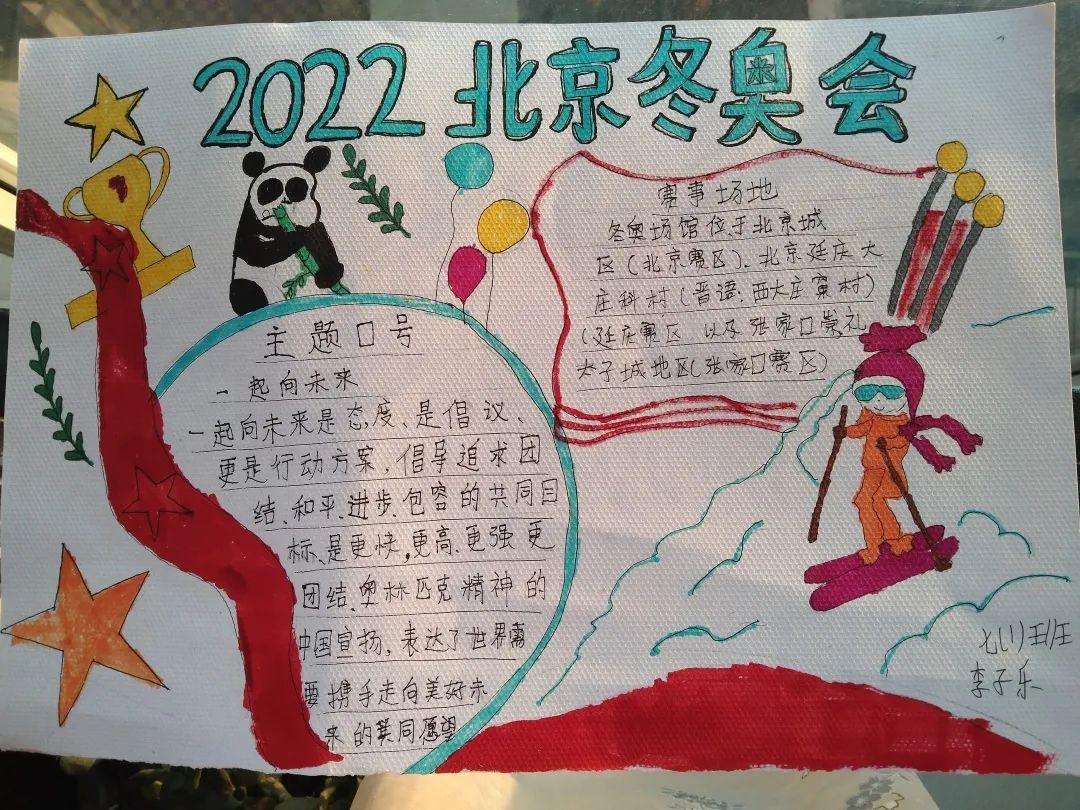 2022北京冬奥会
赛事场地
冬奥场馆位于北京城
区(北京赛区)、北京延庆大
庄科村(晋语:西大庄窠村)
(延庆赛区 以及张家口崇礼
太子城地区(张家口赛区)
主题口号
一起向未来
一起向未来是态度、是倡议、
更是行动方案,倡导追求团
结、和平、进步、包容的共同目
标、是更快,更高、更强更
团结、奥林匹克精神的
中国宣扬,表达了世界需
要携手走向美好未
来的共同愿望
七(1)班
李子乐